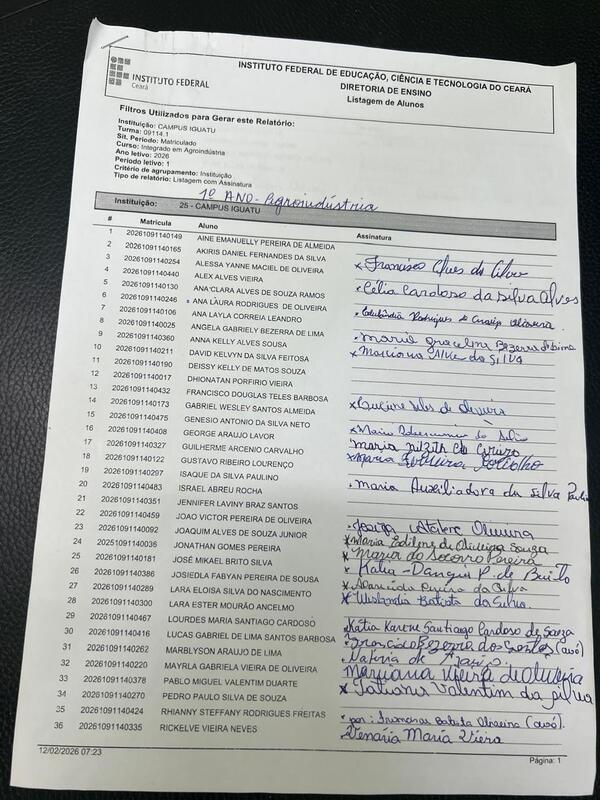 INSTITUTO FEDERAL
Ceará
INSTITUTO FEDERAL DE EDUCAÇÃO, CIÊNCIA E TECNOLOGIA DO CEARÁ
DIRETORIA DE ENSINO
Listagem de Alunos
Filtros Utilizados para Gerar este Relatório:
Instituição: CAMPUS IGUATU
Turma: 09114.1
Sit. Período: Matriculado
Curso: Integrado em Agroindústria
Ano letivo: 2026
Período letivo: 1
Critério de agrupamento: Instituição
Tipo de relatório: Listagem com Assinatura
1º ANO - Agroindústria
Instituição: 25 - CAMPUS IGUATU
# Matrícula Aluno Assinatura
1 20261091140149 AINE EMANUELLY PEREIRA DE ALMEIDA
2 20261091140165 AKIRIS DANIEL FERNANDES DA SILVA
3 20261091140254 ALESSA YANNE MACIEL DE OLIVEIRA
4 20261091140440 ALEX ALVES VIEIRA x Francisco Alves da Silva
5 20261091140130 ANA CLARA ALVES DE SOUZA RAMOS x Célia Cardoso da Silva Alves
6 20261091140246 ANA LAURA RODRIGUES DE OLIVEIRA Rodrigues de
7 20261091140106 ANA LAYLA CORREIA LEANDRO
8 20261091140025 ANGELA GABRIELY BEZERRA DE LIMA x Bezerra de Lima
9 20261091140360 ANNA KELLY ALVES SOUSA x Mariana da SILVA
10 20261091140211 DAVID KELVYN DA SILVA FEITOSA
11 20261091140190 DEISSY KELLY DE MATOS SOUZA
12 20261091140017 DHIONATAN PORFIRIO VIEIRA
13 20261091140432 FRANCISCO DOUGLAS TELES BARBOSA x Teles de Oliveira
14 20261091140173 GABRIEL WESLEY SANTOS ALMEIDA
15 20261091140475 GENESIO ANTONIO DA SILVA NETO x Maria da Silva
16 20261091140408 GEORGE ARAUJO LAVOR Maria
17 20261091140327 GUILHERME ARCENIO CARVALHO x Maria Carvalho
18 20261091140122 GUSTAVO RIBEIRO LOURENÇO
19 20261091140297 ISAQUE DA SILVA PAULINO x Maria Auxiliadora da Silva Paulino
20 20261091140483 ISRAEL ABREU ROCHA
21 20261091140351 JENNIFER LAVINY BRAZ SANTOS
22 20261091140459 JOAO VICTOR PEREIRA DE OLIVEIRA x Oliveira
23 20261091140092 JOAQUIM ALVES DE SOUZA JUNIOR x Maria Edilene de Oliveira Souza
24 20251091140036 JONATHAN GOMES PEREIRA x Maria do Socorro Pereira
25 20261091140181 JOSÉ MIKAEL BRITO SILVA x Kátia P. de Brito
26 20261091140386 JOSIEDLA FABYAN PEREIRA DE SOUSA x Aparecida Pereira da Silva
27 20261091140289 LARA ELOISA SILVA DO NASCIMENTO x Batista da Silva
28 20261091140300 LARA ESTER MOURÃO ANCELMO
29 20261091140467 LOURDES MARIA SANTIAGO CARDOSO Kátia Karene Santiago Cardoso de Souza
30 20261091140416 LUCAS GABRIEL DE LIMA SANTOS BARBOSA x Bezerra dos Santos (avó)
31 20261091140262 MARBLYSON ARAUJO DE LIMA x de Araújo
32 20261091140220 MAYRLA GABRIELA VIEIRA DE OLIVEIRA Mariana Vieira de Oliveira
33 20261091140378 PABLO MIGUEL VALENTIM DUARTE x Tatiana Valentim da Silva
34 20261091140270 PEDRO PAULO SILVA DE SOUZA
35 20261091140424 RHIANNY STEFFANY RODRIGUES FREITAS x por: Francisca Batista Oliveira (avó).
36 20261091140335 RICKELVE VIEIRA NEVES Venária Maria Viera
12/02/2026 07:23
Página: 1